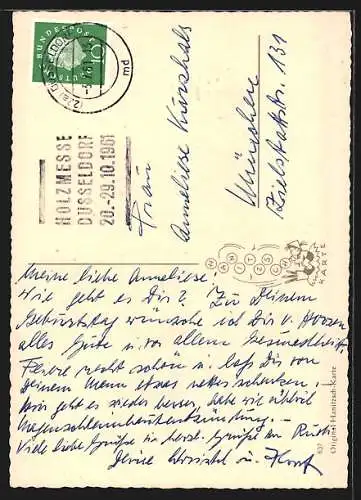 DEUTSCHE BUNDESPOST
10
HOLZMESSE
DÜSSELDORF
20.-29.10.1961
Frau
Anneliese
München
131
HANITZSCH
KARTE
Meine liebe Anneliese.
Wie geht es Dir? Zu Deinem
Geburtstag wünsche ich Dir v. Herzen
alles Gute u. vor allem Gesundheit.
Feiere recht schön u. laß Dir von
Deinem Mann etwas nettes schenken.
Mir geht es wieder besser, habe wie üblich
Magenschleimhautentzündung.
Viele liebe Grüße u. herzl. Grüße an
Deine Christel u. Horst
637 Original Hanitzsch-Karte